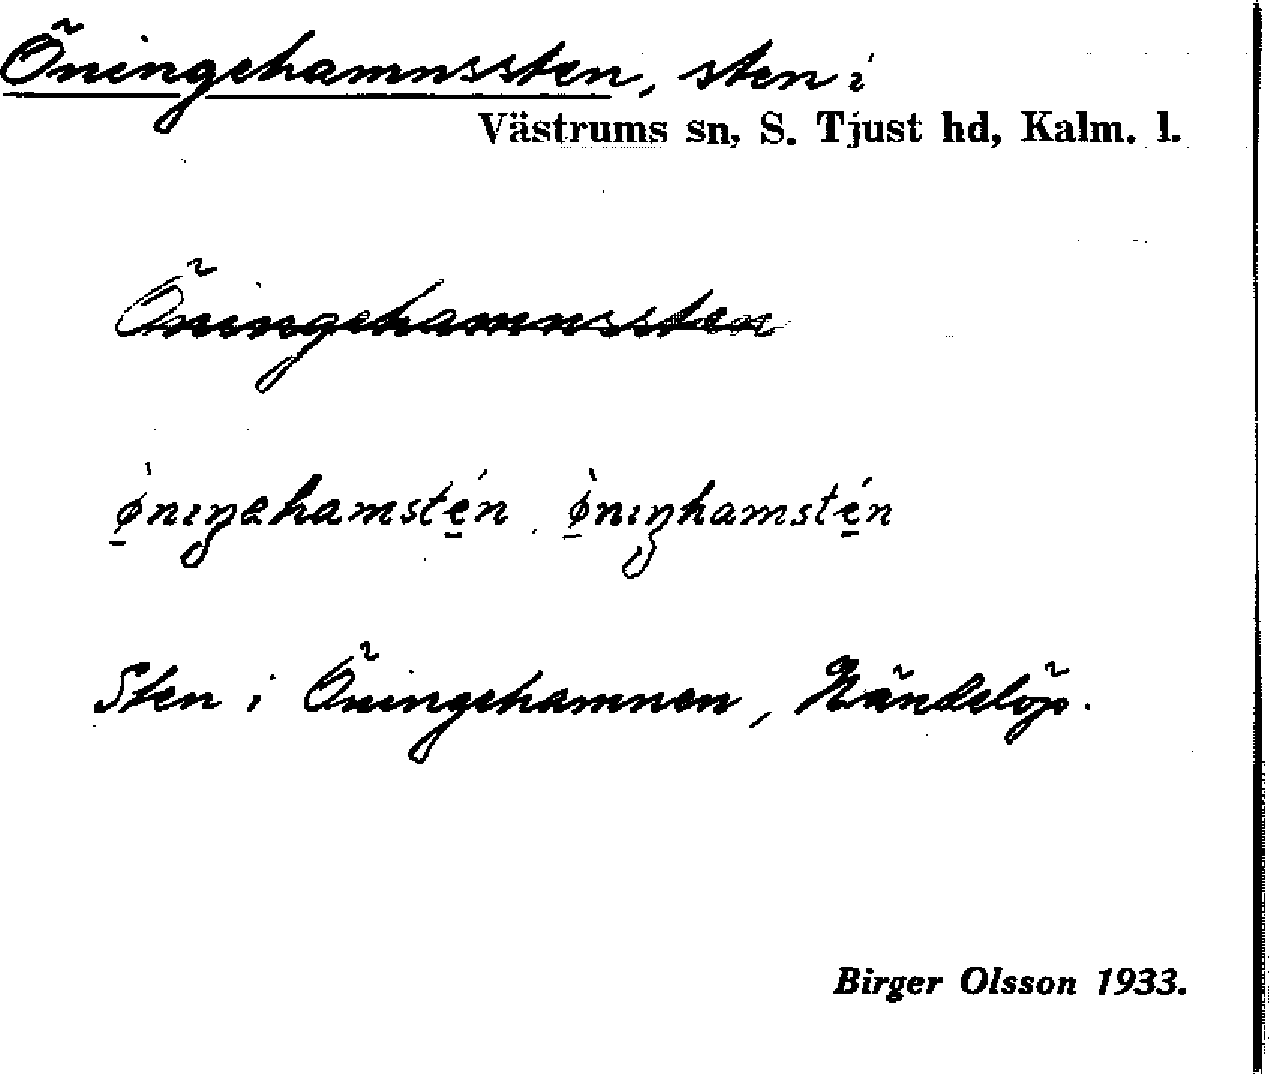 Öningehamnssten, sten i
Västrums sn, S. Tjust hd, Kalm. l.
Öningehamnssten
ø̀niŋəhamstén ø̀niŋhamstén
Sten i Öningehamnen, Händelöp.
Birger Olsson 1933.